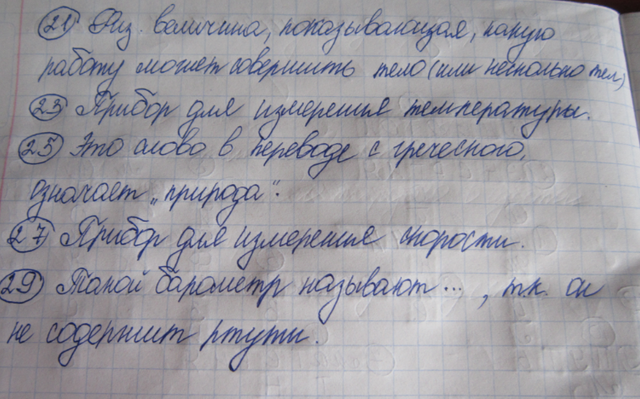 21 Физ. величина, показывающая, какую
работу может совершить тело (или несколько тел)
23 Прибор для измерения температуры.
25 Это слово в переводе с греческого,
означает „природа".
27 Прибор для измерения скорости.
29 Такой барометр называют ..., т.к. он
не содержит ртути.